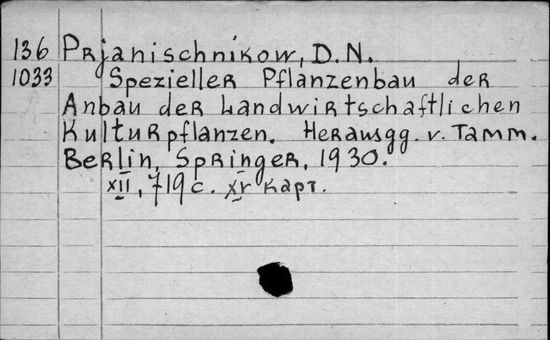 136 Prjanischnikow, D.N.
1033 Spezieller Pflanzenbau der
Anbau der Landwirtschaftlichen
Kulturpflanzen. Herausgg. v. Tamm.
Berlin, Springer, 1930.
XII, 719 c. XV карт.